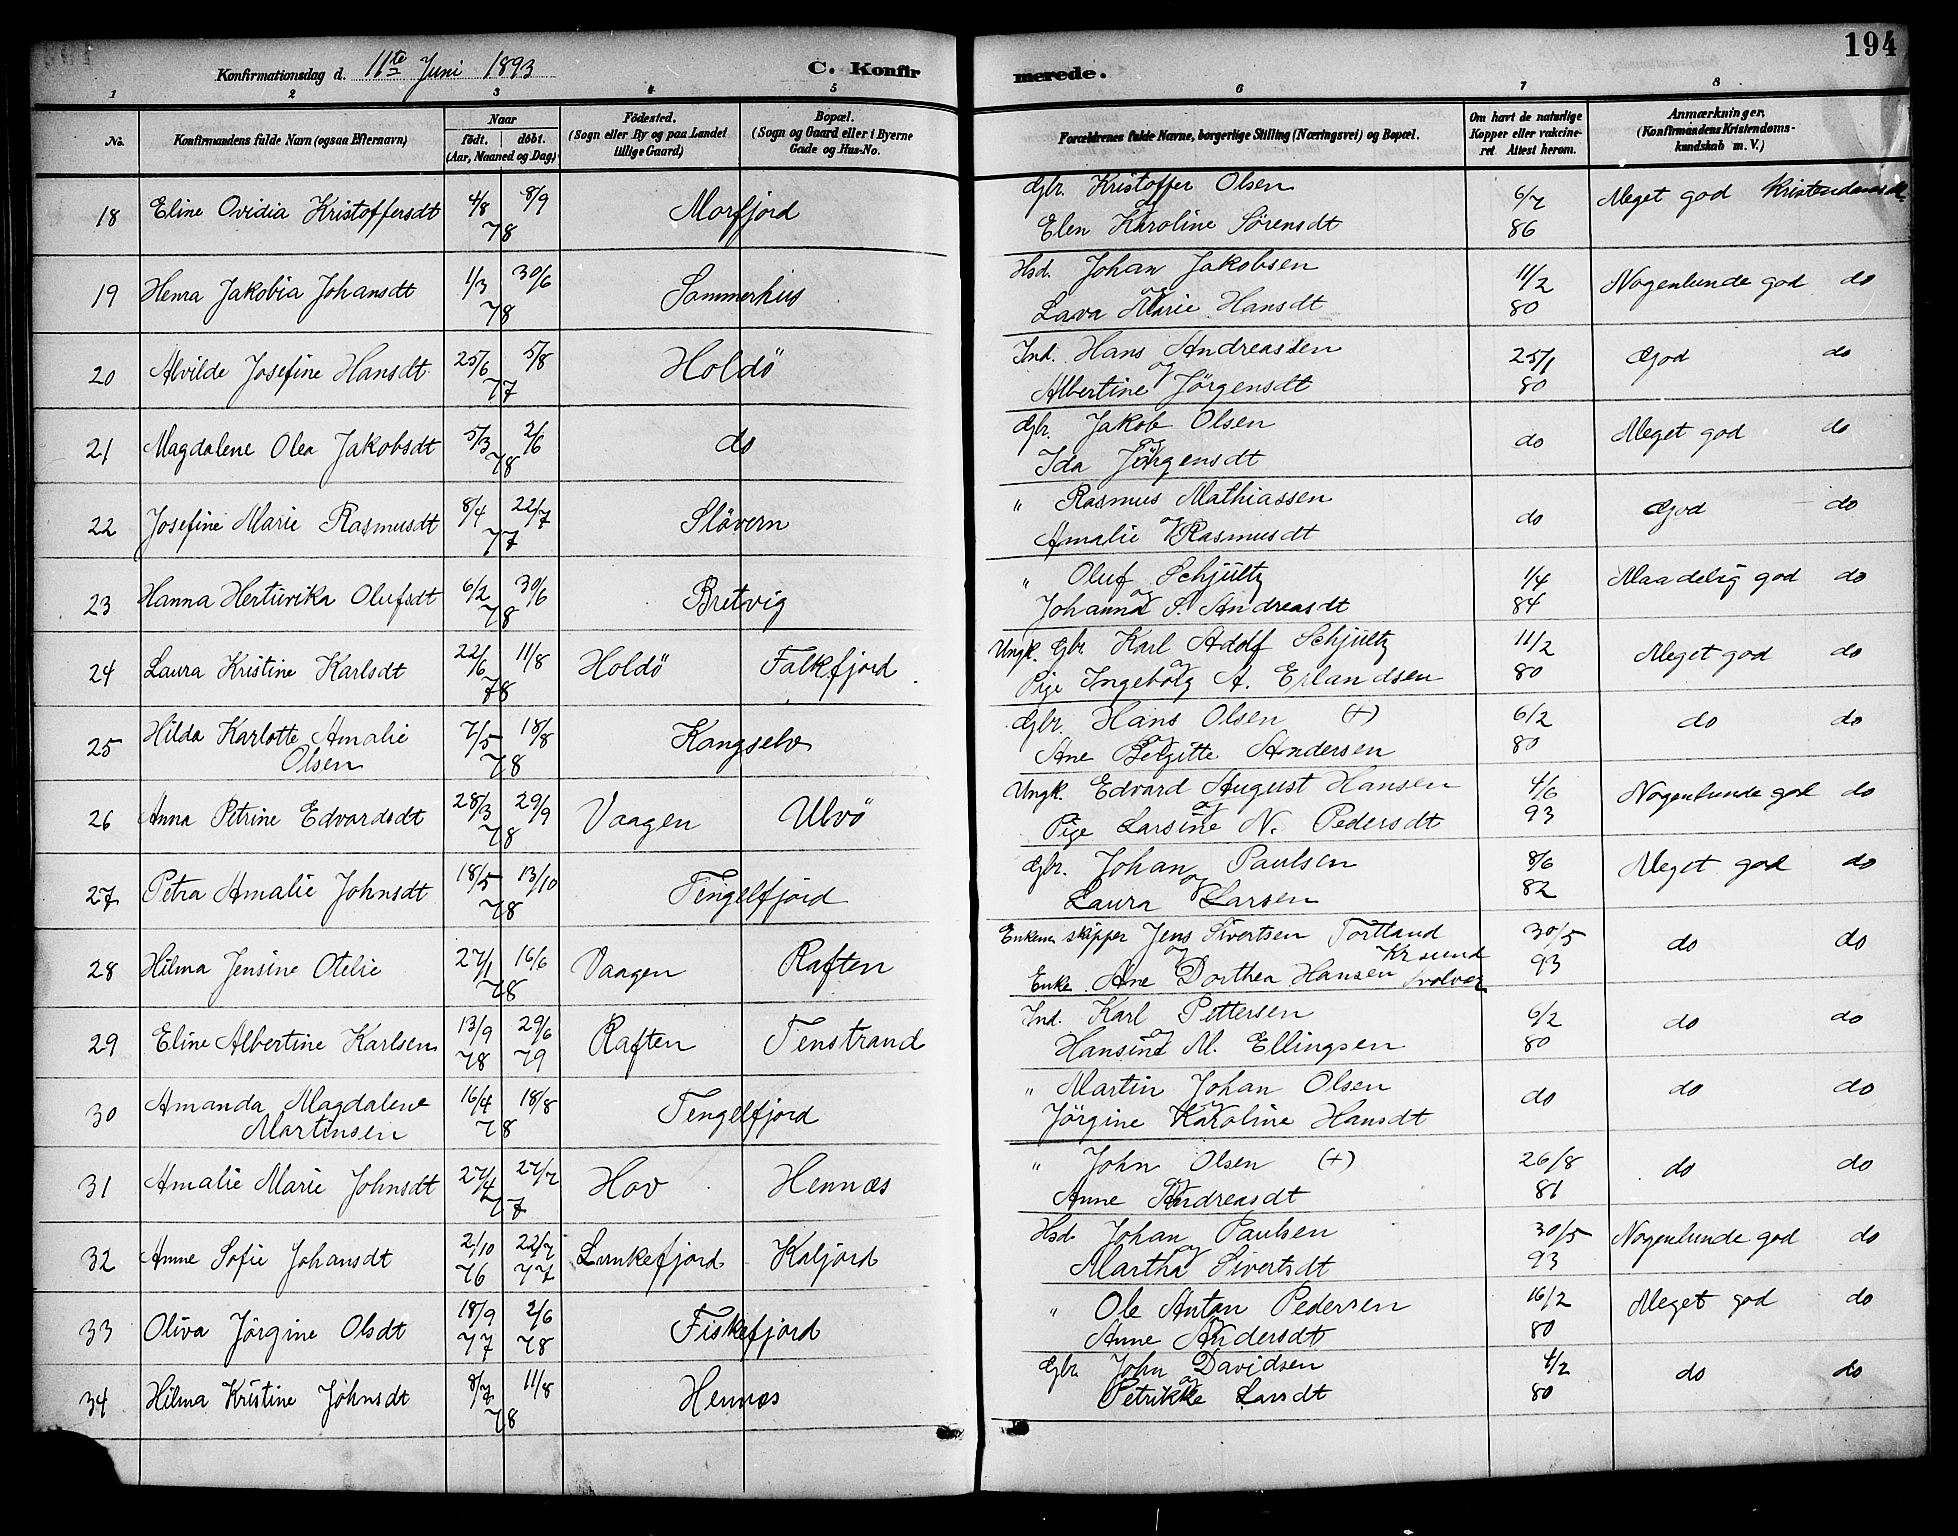 194
Konfirmationsdag d. 11te Juni 1893 C. Konfirmerede.
1 2 3 4 5 6 7 8
No. Konfirmandens fulde Navn (ogsaa Efternavn) Naar født. døbt. (Aar, Maaned og Dag) Fødested. (Sogn eller By og paa Landet tillige Gaard) Bopæl. (Sogn og Gaard eller i Byerne Gade og Hus-No. Forældrenes fulde Navne, borgerlige Stilling (Næringsvei) og Bopæl. Om havt de naturlige Kopper eller vakcineret. Attest herom. Anmærkninger. (Konfirmandens Kristendomskundskab m. V.)
18 Eline Ovidia Kristoffersdt 4/8 8/9 78 Morfjord Gbr. Kristoffer Olsen og Elen Karoline Sørensdt 6/7 86 Meget god Kristendomsk.
19 Henra Jakobia Johansdt 1/3 30/6 78 Sommerhus Hsd. Johan Jakobsen og Lava Marie Hansdt 11/2 80 Nogenlunde god do
20 Alvilde Josefine Hansdt. 25/6 5/8 77 Holdö Ind. Hans Andreassen og Albertine Jörgensdt 25/1 80 God do
21 Magdalene Olea Jakobsdt 5/3 2/6 78 do Gbr. Jakob Olsen og Ida Jörgensdt do Meget god do
22 Josefine Marie Rasmusdt 8/4 22/7 77 Slövern " Rasmus Mathiassen og Amalie Rasmusdt do God do
23 Hanna Herturika Olufsdt 6/2 30/6 78 Bretvig " Oluf Schjültz og Johanna S. Andreasdt 1/4 84 Maadelig god do
24 Laura Kristine Karlsdt 22/6 11/8 78 Holdö Falkfjord. Ungk. Gbr Karl Adolf Schjültz og Pige Ingeborg A. Erlandsen 11/2 80 Meget god do
25 Hilda Karlotte Amalie Olsen 7/5 18/8 78 Kongselv Gbr. Hans Olsen (+) og Ane Bergitte Andersen 6/2 80 do do
26 Anna Petrine Edvardsdt 28/3 29/9 78 Vaagen Ulvö Ungk. Edvard August Hansen og Pige Larsine N. Pedersdt 4/6 93 Nogenlunde god do
27 Petra Amalie Johnsdt 18/5 13/10 78 Tengelfjord Gbr. Johan Paulsen og Laura Larsen 8/6 82 Meget god do
28 Hilma Jensine Otelie 27/1 16/6 78 Vaagen Raften Enkem skipper Jens Sivertsen Tortland Kr sund og Enke Ane Dorthea Hansen Svolvær 30/5 93 do do
29 Eline Albertine Karlsen 13/9 78 29/6 79 Raften Tenstrand Ind. Karl Pettersen og Hansine M. Ellingsen 6/2 80 do do
30 Amanda Magdalene Martinsen 16/4 18/8 78 Tengelfjord " Martin Johan Olsen og Jörgine Karoline Hansdt do do do
31 Amalie Marie Johnsdt 27/4 27/7 77 Hov Hennæs " John Olsen (+) og Anne Andreasdt 26/8 81 do do
32 Anne Sofie Johansdt 2/10 76 22/7 77 Lunkefjord Kaljord Hsd. Johan Paulsen og Martha Sivertsdt 30/5 93 Nogenlunde god do
33 Oliva Jörgine Olsdt 18/9 77 2/6 78 Fiskefjord " Ole Anton Pedersen og Anne Andersdt 16/2 80 Meget god do
34 Hilma Kristine Johnsdt 8/7 11/8 78 Hennæs Gbr John Davidsen og Petrikke Larsdt 4/2 80 do do